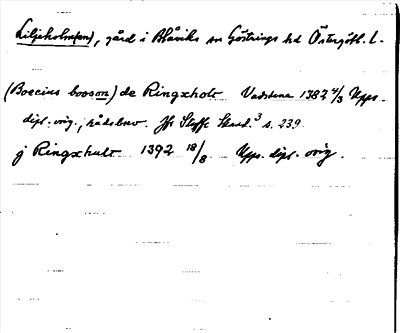 Liljeholm(en), gård i Blåviks sn Göstrings hd Östergötl. l.
(Boecius booson) de Ringxholt Vadstena 1382 4/3 Upps.
dipl. orig., rådsbrev. Jfr Styffe Skand.³ s. 239.
j Ringxhult 1392 18/8 Upps. dipl. orig.